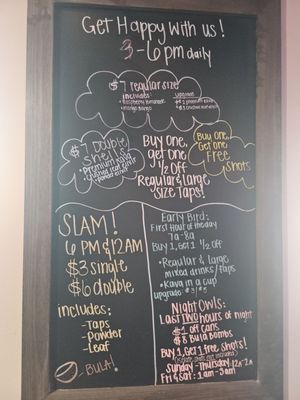 Get Happy with us!
3-6pm daily
$7 regular size
includes:
• Raspberry lemonade
• Mango
upgrade
$7 Double
Shells
• Premium Kava
Buy One,
get one
1/2 Off
Regular & large
size Taps!
Buy One,
Get One
Free
Shots
SLAM!
6PM & 12AM
$3 single
$6 double
includes:
-Taps
-Powder
-Leaf
-BULA!
Early Bird:
First Hour of the day
7a-8a
Buy 1, Get 1 1/2 off
• Regular & large
mixed drinks/taps
• Kava in a cup
upgrade
Night Owls:
Last TWO hours of night
off cans
$8 Bula Bombs
Buy 1, Get 1 Free Shots!
Sunday-Thursday: 12a-2a
Fri & Sat: 1am-3am